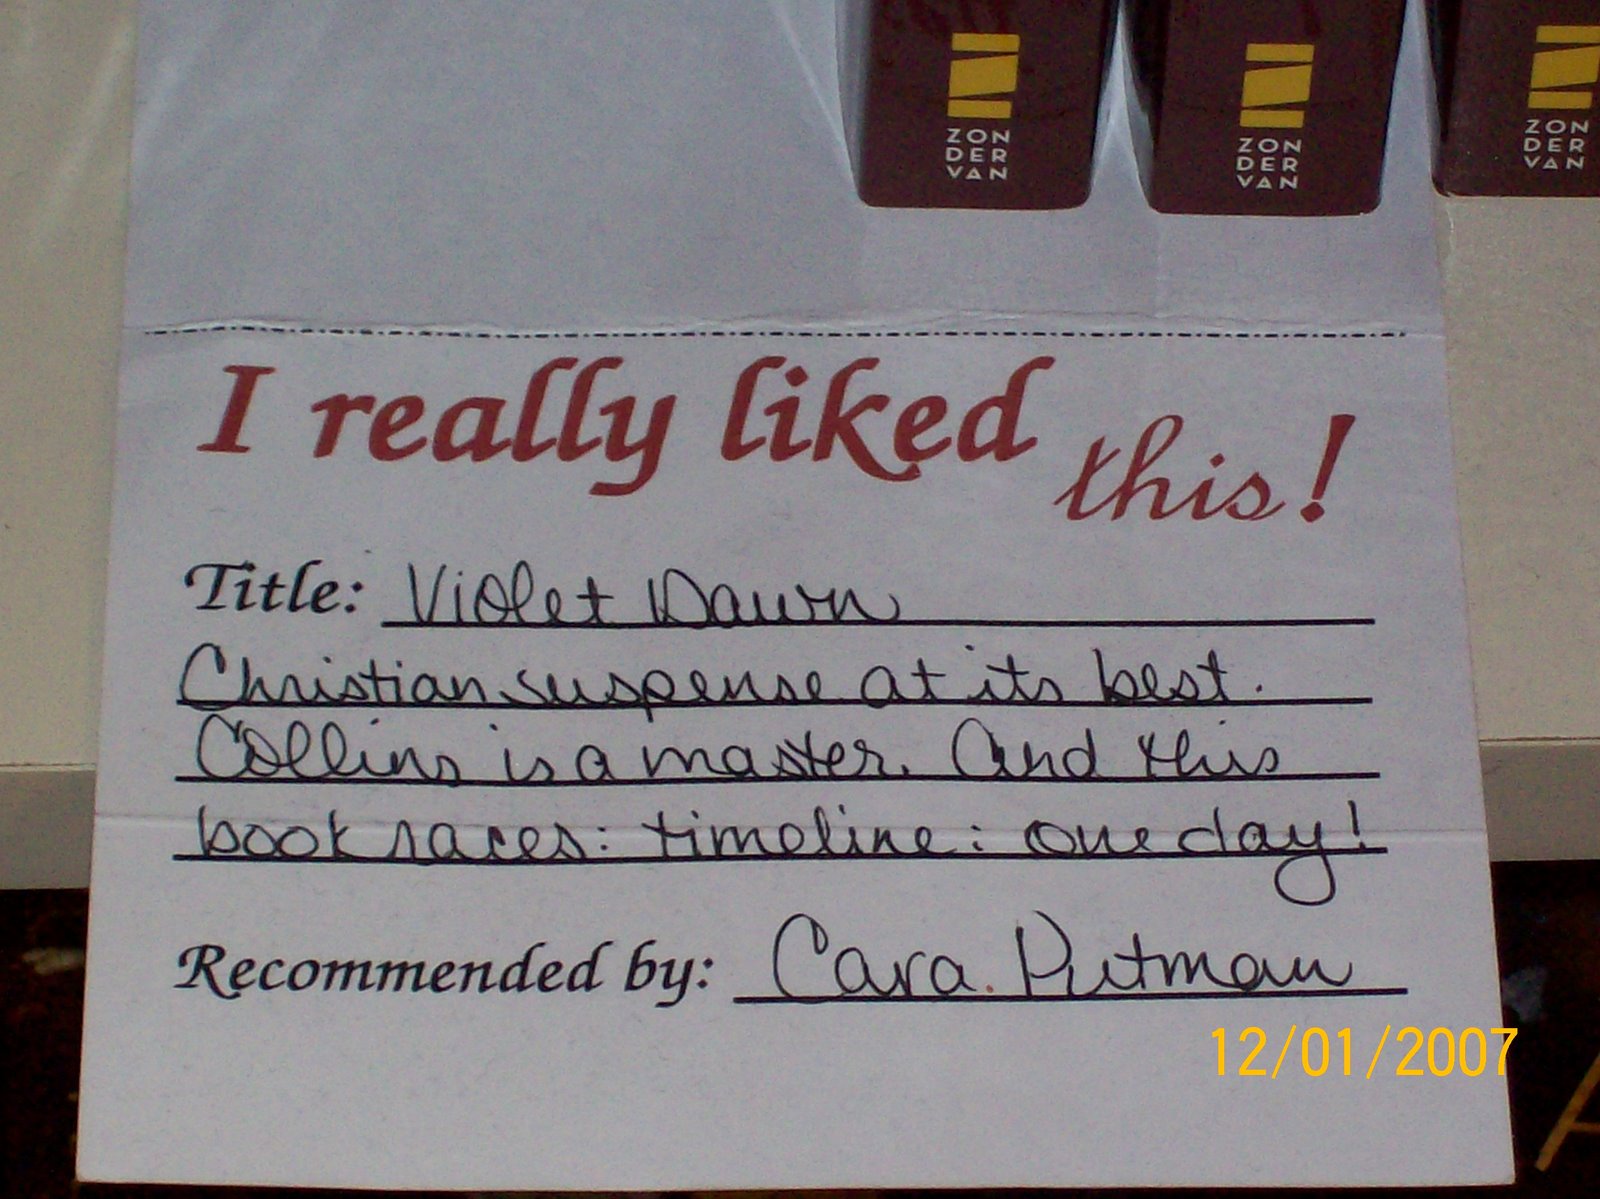 ZON
DER
VAN
ZON
DER
VAN
ZON
DER
VAN
I really liked this!
Title: Violet Dawn
Christian suspense at its best.
Collins is a master. And this
book races: timeline: one day!
Recommended by: Cara Putman
12/01/2007